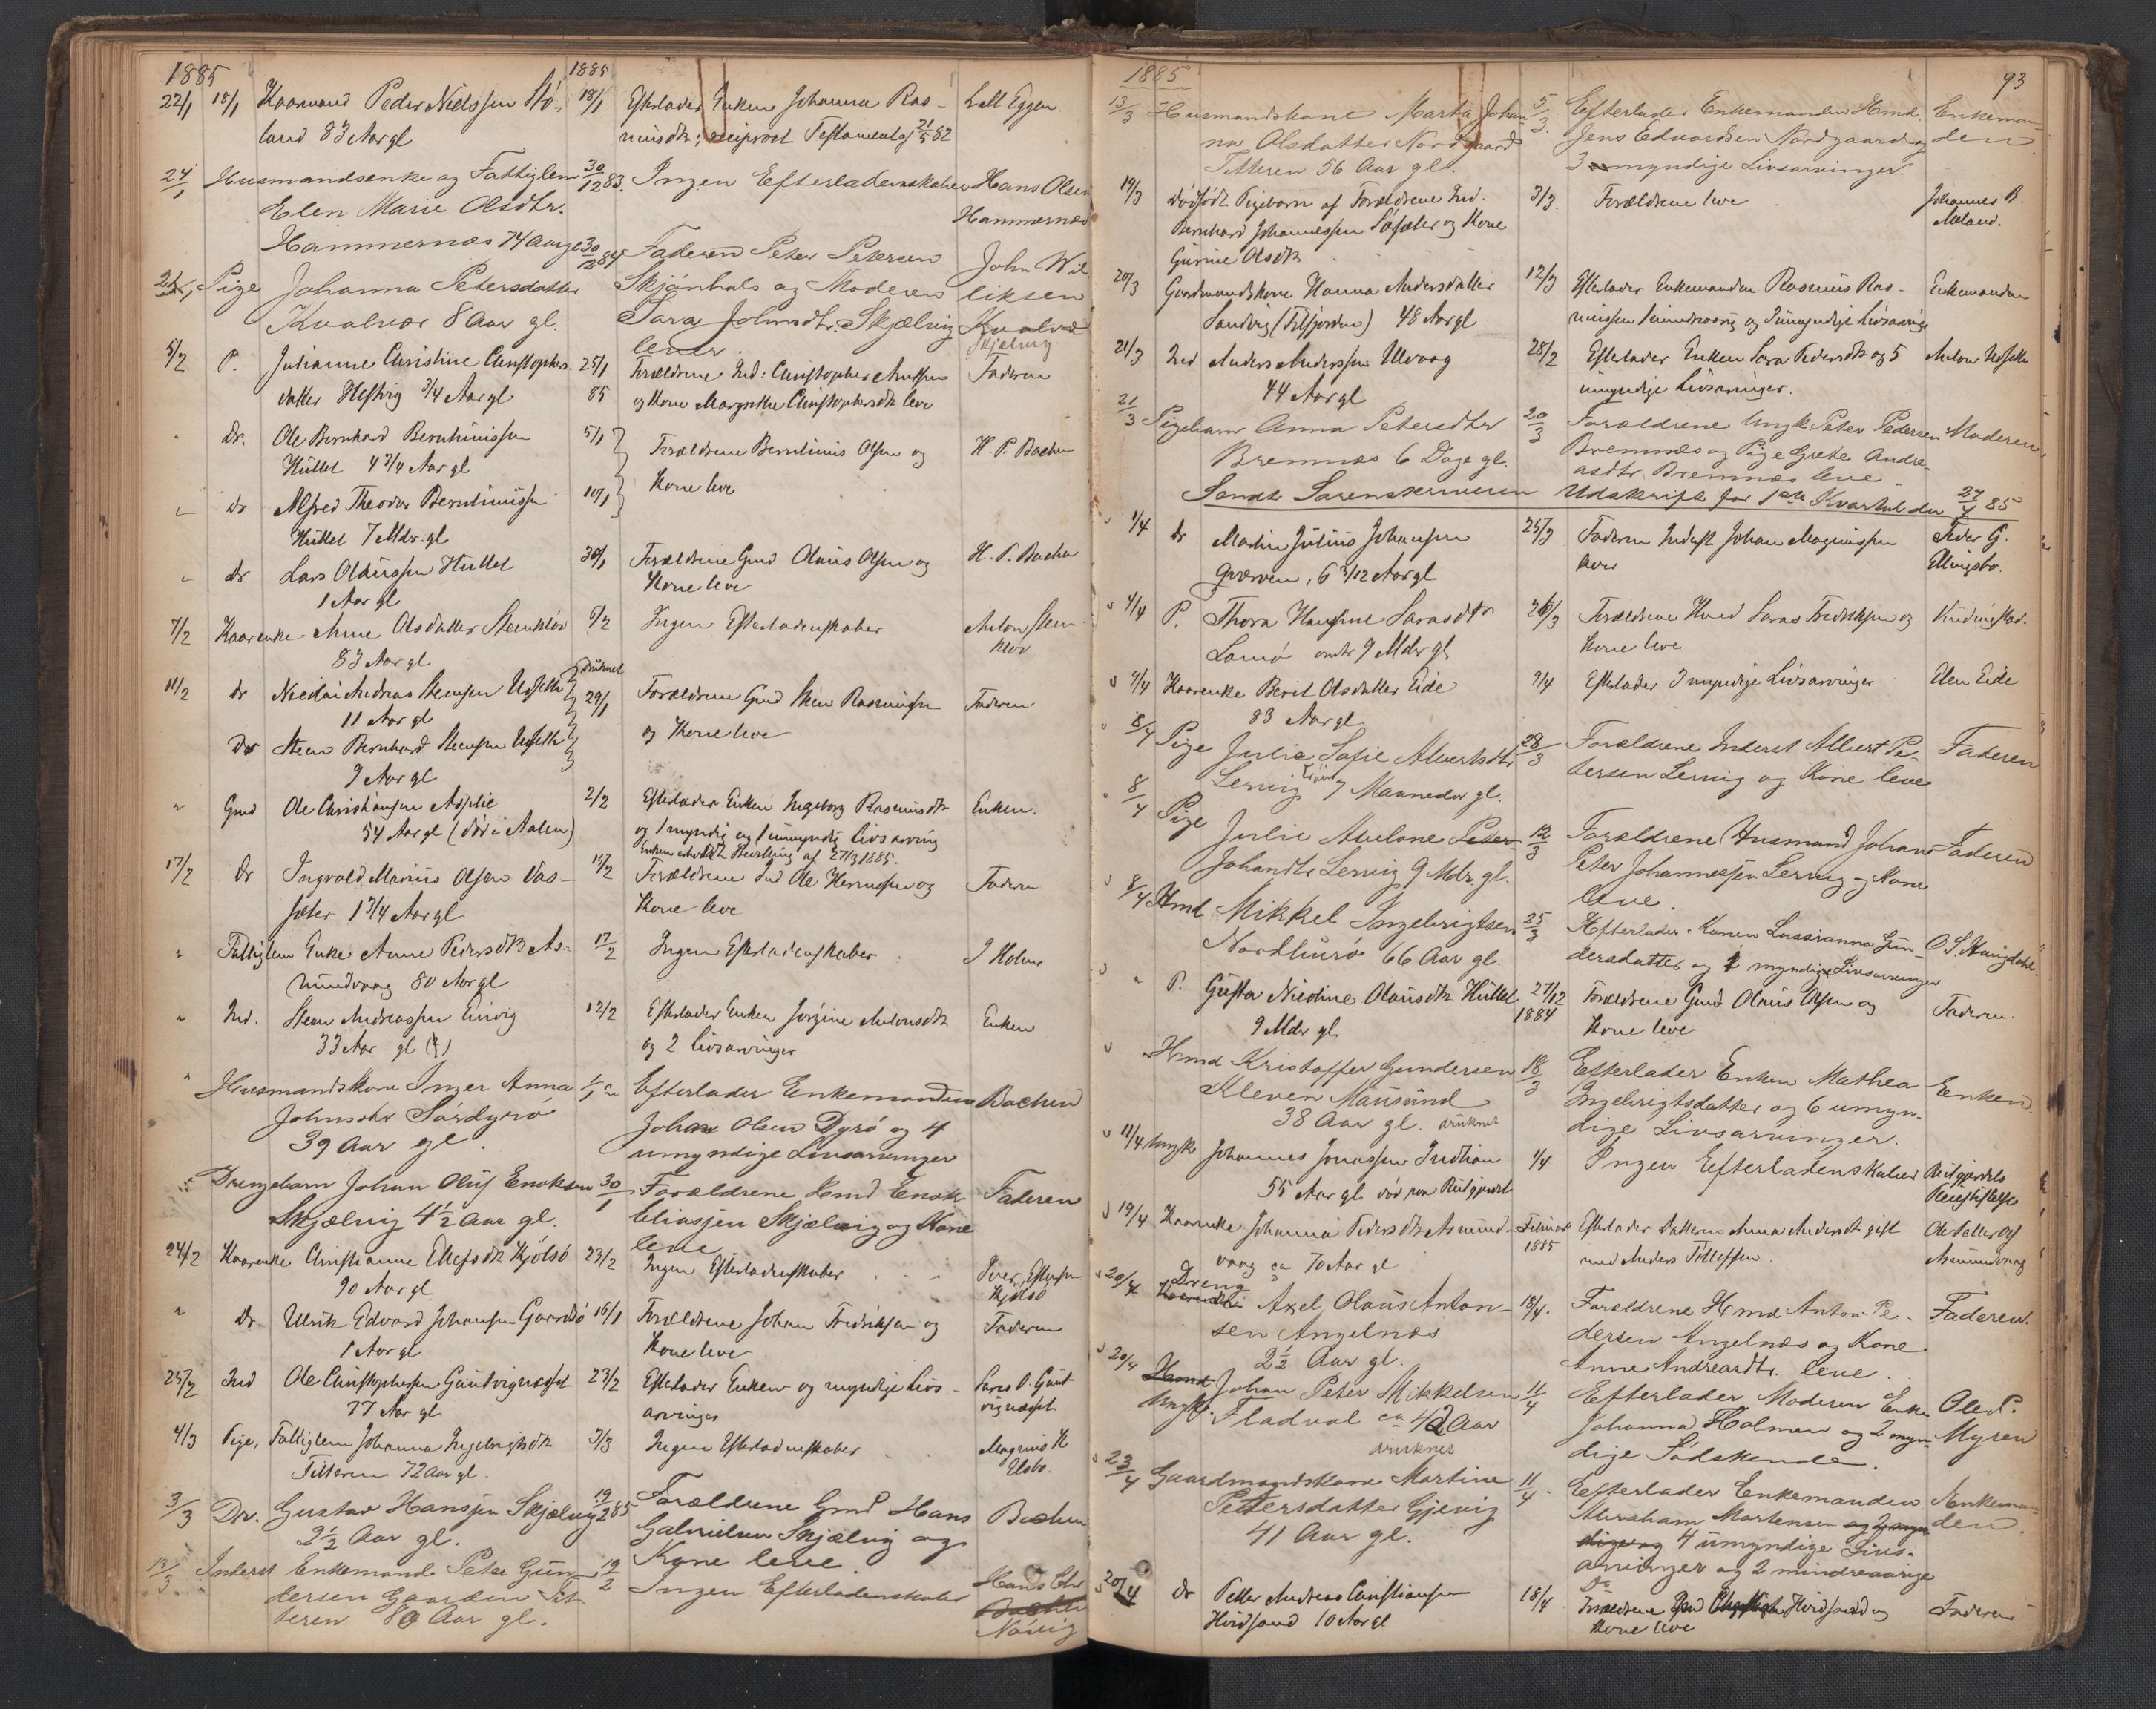 1885
1885
22/1 18/1 Kaarmand Peder Nielssen Stö- 18/1 Efterlader Enken Johanna Ras-
land 83 Aar gl Testament af 21/5 82
24/1 Husmandsenke og Fattiglem 30/12 83. Ingen Efterladenskaber Hans Olsen
Elen Marie Olsdtr. Hammernæs
Hammernæs 74 Aar gl 30/12 84 Faderen Peter Petersen John Wil
Pige Johanna Petersdatter Skjönhals og Moderen liksen
Kvalvær 8 Aar gl. Sara Johnsdtr. Skjælvig
lever
5/2 P. Julianne Christine Christophers- 25/1 Forældrene Ind. Christopher Faderen
datter Hestvig 3/4 Aar gl 85 og Kone Margrethe Christophersdtr leve
" Dr. Ole Bernhard Bernhinissen 5/1 Forældrene Bernhinus Olsen og H. P. Bachen
Hüllet 4 3/4 Aar gl Kone leve
Dr Alfred Theodor Bernhinissen 10/1
Hüllet 7 Mdr. gl
" dr Lars Olaussen Hüllet 30/1 Forældrene Gmd Olaus Olsen og H. P. Bachen
1 Aar gl Kone leve
7/2 Kaarenke Anne Olsdatter Stenklöv 6/2 Ingen Efterladenskaber Anton Sten-
83 Aar gl klöv
druknet
11/2 dr Nicolai Andreas Steensen Ulseth 29/1 Forældrene Gmd Steen Rasmussen Faderen
11 Aar gl og Kone leve
Dr Steen Bernhard Steensen Ulseth
9 Aar gl
" Gmd Ole Christiansen 2/2 Efterlader Enken Ingeborg Rasmusdtr Enken.
54 Aar gl (död i Aalen) og 1 myndig og 1 umyndig Livsarving
Enken Bevilling af 27/3 1885.
17/2 Dr Ingvald Marius Olsen Vas- 15/2 Forældrene Ind Ole og Faderen
sæter 1 3/4 Aar gl Kone leve
" Fattiglem Enke Anne Pedersdtr As- 17/2 Ingen Efterladenskaber J Holm
mundvaag 80 Aar gl
" Ind. Steen Andreassen 12/2 Efterlader Enken Jörgine Antonsdtr Enken
33 Aar gl og 2 Livsarvinger
" Husmandskone Inger Anna Efterlader Enkemanden Bachen
Johnsdtr Sördyrö Johan Olsen Dyrö og 4
39 Aar gl. umyndige Livsarvinger
Drengebarn Johan Oluf Enoksen 30/1 Forældrene Hmd Enok Faderen
Skjælvig 4 1/2 Aar gl. Eliassen Skjælvig og Kone
leve
24/2 Kaarenke Christianne Kjölsö 23/2 Ingen Efterladenskaber Iver
90 Aar gl Kjölsö
" dr Ulrik Edvard Johansen 16/1 Forældrene Johan Fredriksen og Faderen
1 Aar gl Kone leve
25/2 Ind Ole Christophersen Gautvignæsset 23/2 Efterlader Enken og myndige Livs- Lars O. Gaut
77 Aar gl arvinger vignæsset
4/3 Pige, Fattiglem Johanna Ingebrigtsdtr 3/3 Ingen Efterladenskaber Magnus H
Titteren 72 Aar gl. Elsbo.
3/3 Dr. Gustav Hansen Skjælvig 19/2 85 Forældrene Gmd Hans Bachen
2 1/2 Aar gl. Gabrielsen Skjælvig og
Kone leve
13/3 Inderst Enkemand Peter Gun- 19/2 Ingen Efterladenskaber Hans Chr
dersen Gaarden Tit-
teren 80 Aar gl. Növig
1885 93
13/3 Husmandskone Marta Johan- 5/3. Efterlader Enkemanden Hmd. Enkeman-
na Olsdatter Nordgaard Jens Eduardsen Nordgaard og den
Titteren 56 Aar gl. 3 myndige Livsarvinger.
19/3 Dödfödt Pigebarn af Forældrene Ind. 3/3. Forældrene leve Johannes B.
Bernhard Johannessen og Kone Meland.
Gurine Olsdtr
20/3 Gaardmandskone Hanna Andersdatter 12/3 Efterlader Enkemanden Rasmus Ras- Enkemanden
Sandvig (Filfjorden) 48 Aar gl mussen 1 mindreaarig og 3 umyndige Livsarvinger
21/3 Ind Anders Anderssen Ulvaag 28/2 Efterlader Enken Sara Pedersdtr og 5 Anton Ulseth
44 Aar gl umyndige Livsarvinger.
21/3 Pigebarn Anna Petersdtr 20/3 Forældrene Ungk. Peter Pedersen Moderen
Bremnæs 6 Dage gl. Bremnæs og Pige Grete Andre-
asdtr. Bremnæs leve
Sendt Sorenskriveren Udskrift for 1ste Kvartal den 27/4 85
1/4 dr Martin Julius Johansen 25/3 Faderen Inderst Johan Magnussen Peder G.
6 3/12 Aar gl lever Ellingsbo.
4/4 P. Thora Hansine Larsdtr 26/3 Forældrene Hmd Lars Fredriksen og
Lamö omtr 9 Mdr gl Kone leve
9/4 Kaarenke Berit Olsdatter Eide 9/4 Efterlader 3 myndige Livsarvinger Elen Eide
83 Aar gl
8/4 Pige Julie Sofie Albertsdtr 28/3 Forældrene Inderst Albert Pe- Faderen
Lervig 7 Maaneder gl. tersen Lervig og Kone leve
8/4 Pige Julie Abelone Peter 12/3 Forældrene Husmand Johan Faderen
Johansdtr Lervig 9 Mdr. gl. Peter Johannessen Lervig og Kone
leve.
8/4 Hmd Mikkel Ingebrigtsen 25/3 Efterlader Konen Lussianna Gun- O. S. Haugdahl.
Nordhurö 66 Aar gl. dersdatter og myndige Livsarvinger
" P. Gusta Nicoline Olausdtr Hüllet 27/12 Forældrene Gmd Olaus Olsen og Faderen.
9 Mdr gl. 1884 Kone leve
" Hmd Kristoffer Gundersen 18/3 Efterlader Enken Mathea Enken.
Kleven Mausund Ingebrigtsdatter og 6 umyn-
38 Aar gl. druknet dige Livsarvinger.
11/4 Ungk Johannes Jonassen 1/4 Ingen Efterladenskaber Reitgjerdets
55 Aar gl död paa Reitgjerdet Pleiestiftelse
19/4 Kaarenke Johanna Pedersdtr Asmund- Februar Efterlader Datteren Anna Andersdtr gift Ole
vaag ca 70 Aar gl 1885 med Anders Tilleffsen. Asmundvaag
20/4 Dreng Axel Olaus Anton- 18/4. Forældrene Hmd Anton Pe- Faderen.
sen Angelnæs dersen Angelnæs og Kone
2 1/2 Aar gl. Anne Andreasdtr. leve.
20/4 Hmd
Ungk. Johan Peter Mikkelsen 11/4 Efterlader Moderen Enke Ole P.
Fladval ca 42 Aar Johanna Holmen og 2 myn- Myren
druknet dige Södskende.
23/4 Gaardmandskone Martine 11/4 Efterlader Enkemanden Enkeman-
Pettersdatter Gjevig Abraham Mortensen og 2 myn den.
41 Aar gl. dige og 4 umyndige Livs-
arvinger og 2 mindreaarige
20/4 dr Petter Andreas Christiansen 18/4 Forældrene Hvidsand og Faderen
Hvidsand 10 Aar gl Kone leve